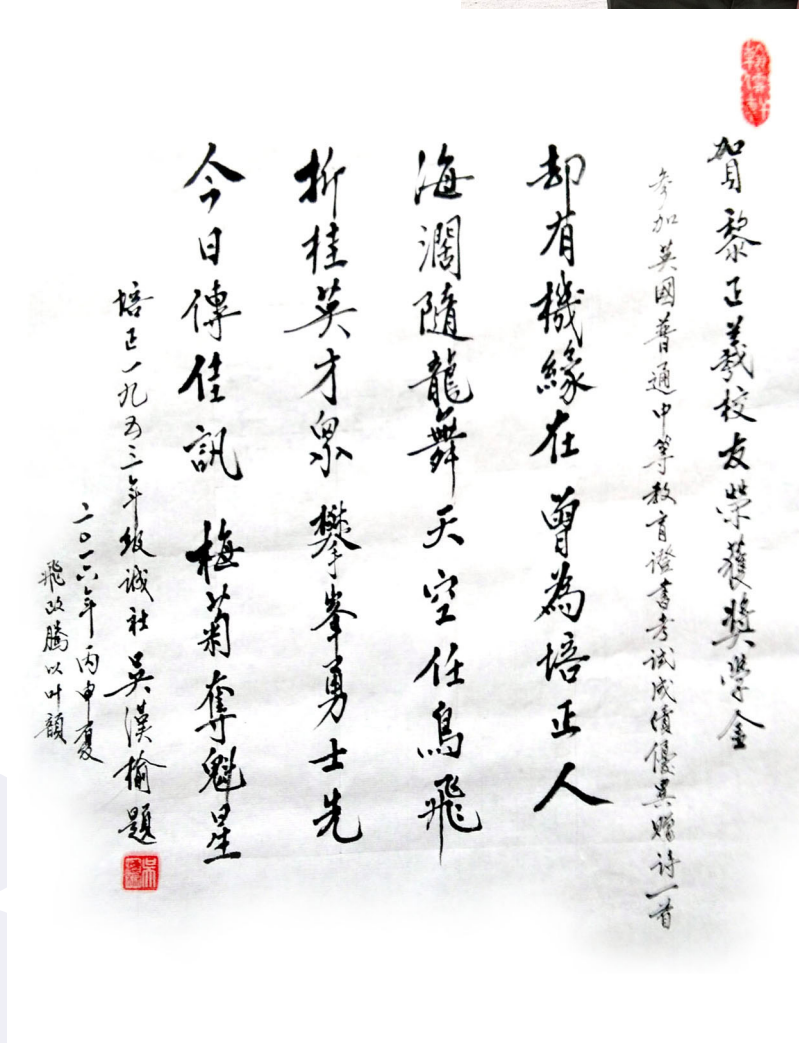 賀黎正義校友榮獲獎學金
參加英國普通中等教育證書考試成績優異贈詩一首
却有機緣在 曾為培正人
海濶隨龍舞 天空任鳥飛
折桂英才眾 攀峯勇士先
今日傳佳訊 梅菊奪魁星
培正一九五三年級誠社 吳漢榆題
二〇一六年丙申夏
飛改騰以叶韻